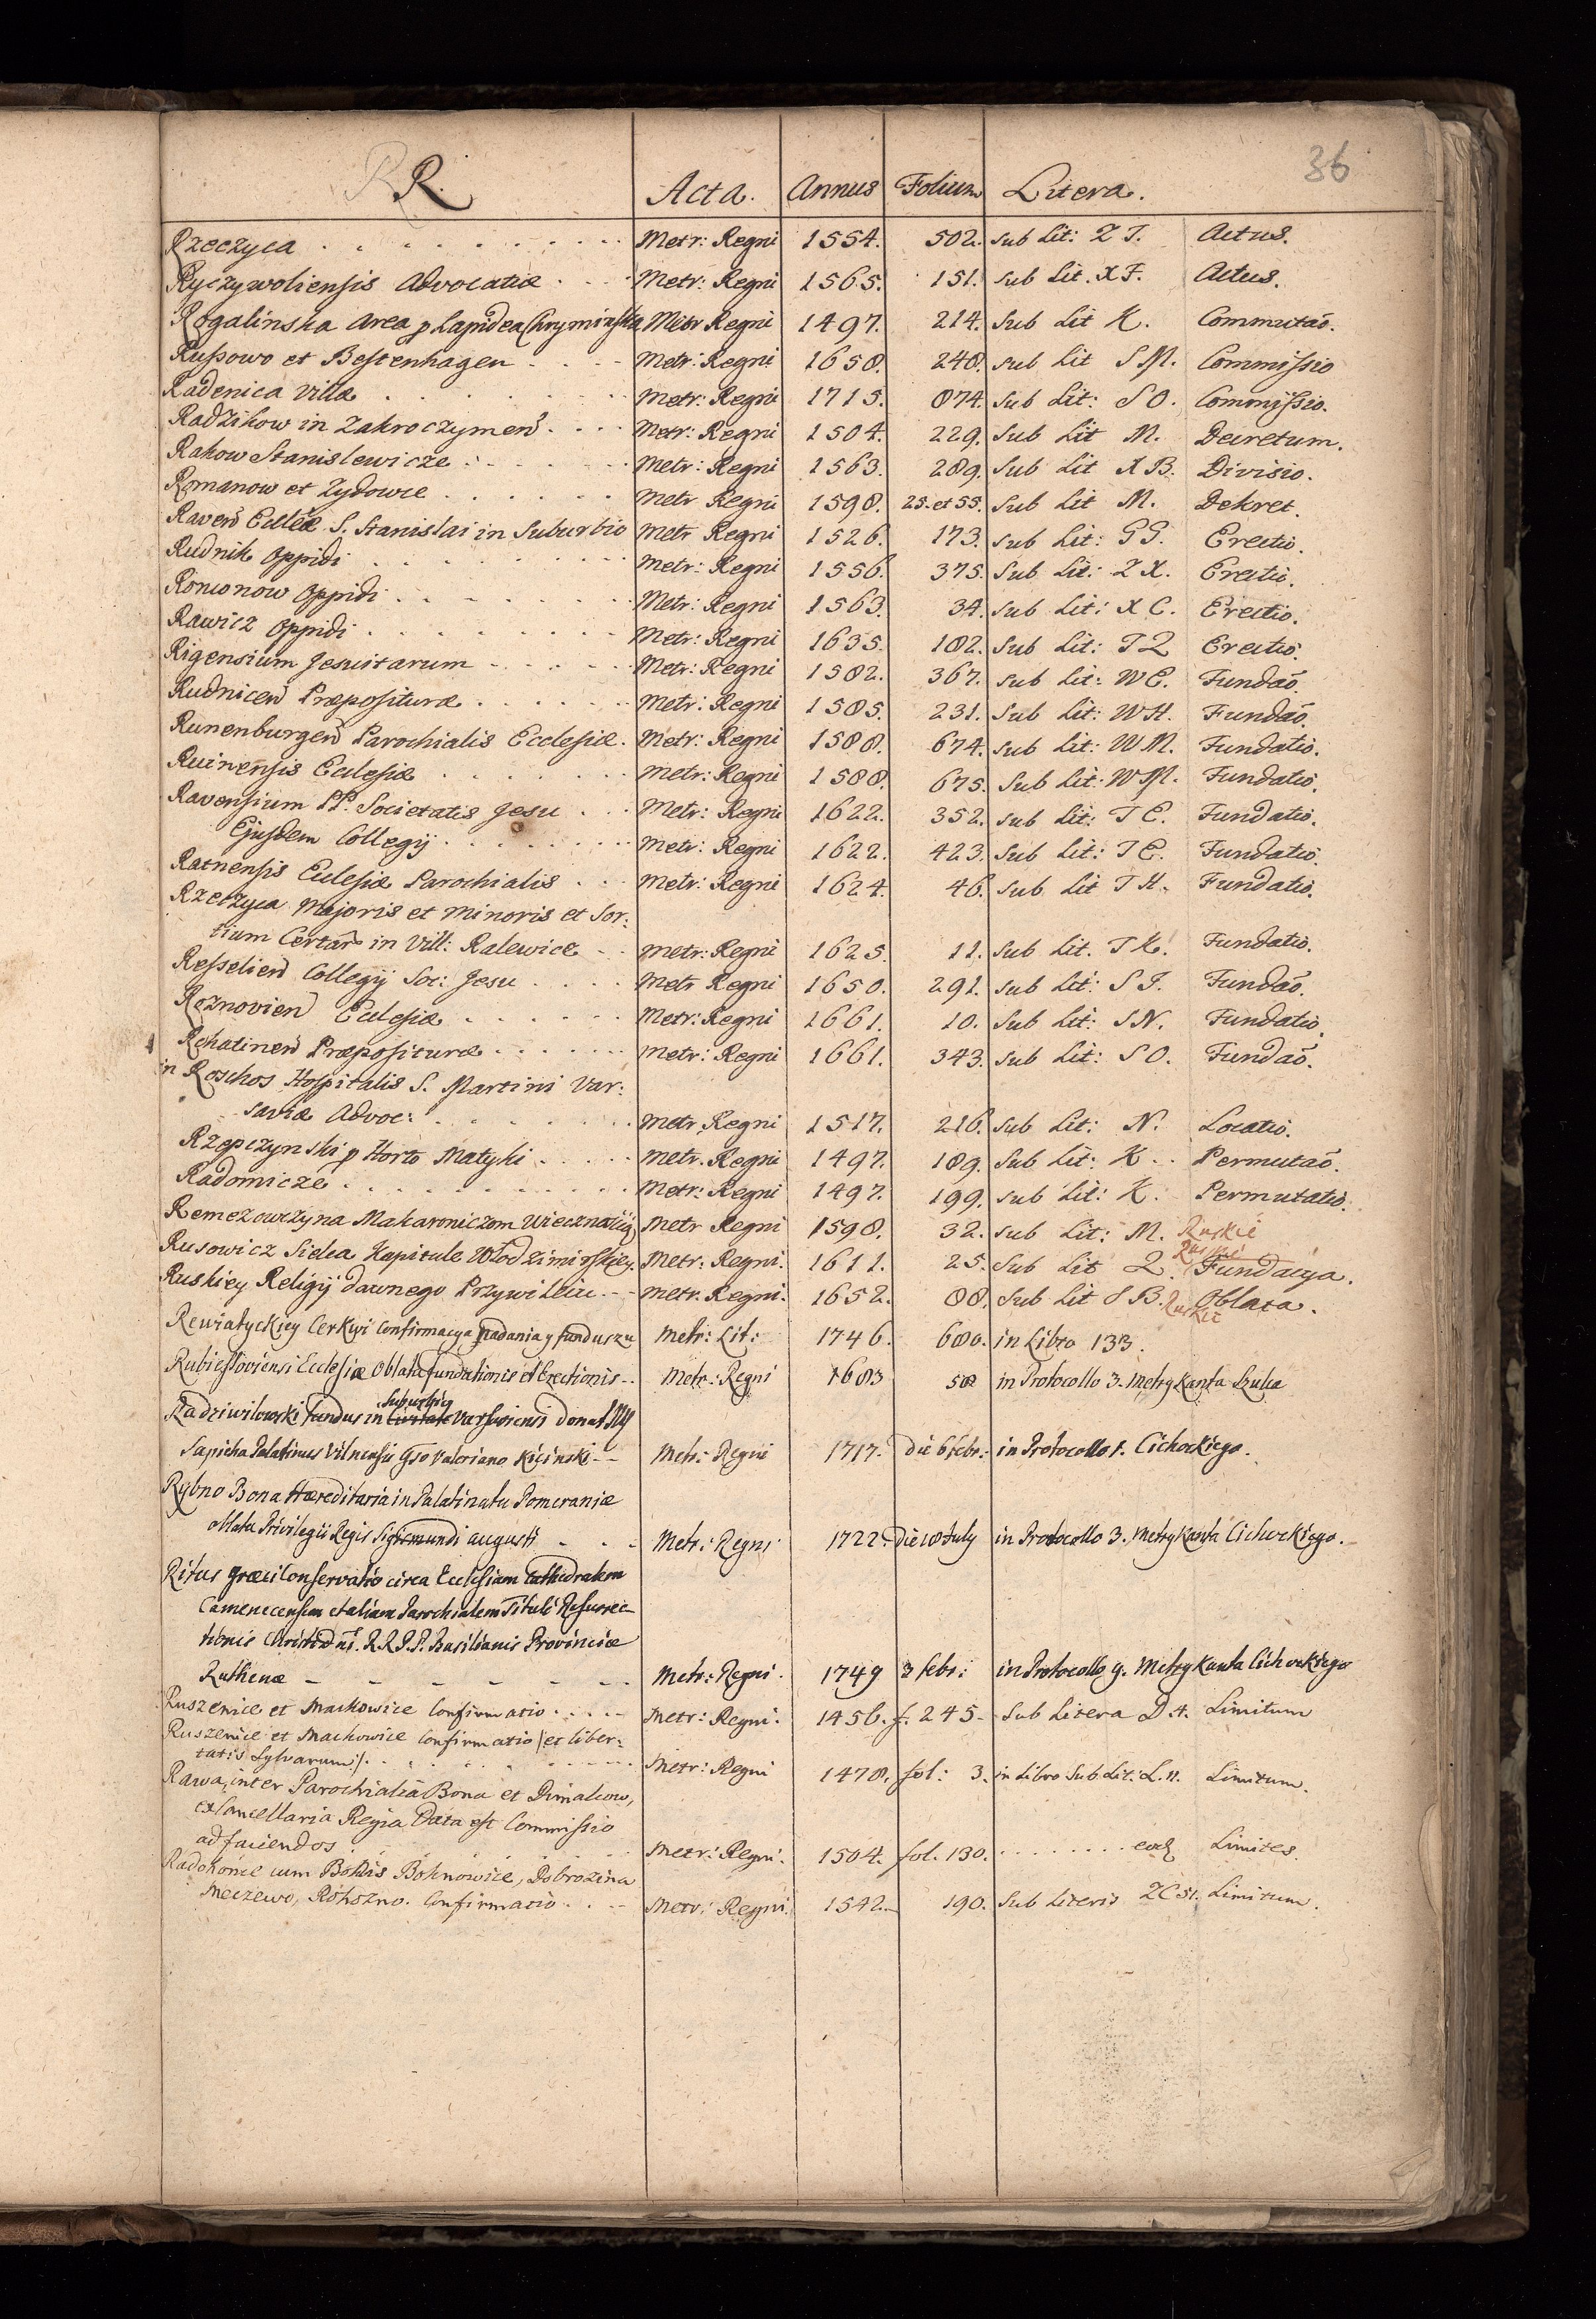 36
R R. Acta. Annus Folium Litera.
Rzeczyca . . . . . . . . . . Metr: Regni 1554. 502. sub Lit: Z T. Actus.
Ryczywoliensis Advocatiæ . . . Metr: Regni 1565. 151. sub Lit. X F. Actus.
Rogalinska Area p Lapidea Chryminska Metr Regni 1497. 214. sub Lit K. Commutaõ.
Russowo et Bestenhagen . . . Metr: Regni 1658. 248. sub Lit S M. Commissio
Radenica Villa . . . . . . . Metr: Regni 1715. 874. sub Lit: S O. Commissio.
Radzikow in Zakroczymen . . . . Metr: Regni 1504. 229. sub Lit M. Decretum.
Rakow Stanislewicze . . . . . . Metr: Regni 1563. 289. sub Lit X B. Divisio.
Romanow et Zydowce . . . . . . Metr Regni 1598. 25. et 55. sub Lit M. Dekret.
Raven Eccleæ S. Stanislai in Suburbio Metr Regni 1526. 173. sub Lit: G G. Erectio.
Rudnik Oppidi . . . . . . . Metr: Regni 1556. 375. sub Lit: Z X. Erectio.
Romonow Oppidi . . . . . . . Metr: Regni 1563. 34. sub Lit: X C. Erectio.
Rawicz Oppidi . . . . . . . . Metr: Regni 1635. 182. sub Lit: T Z Erectio.
Rigensium Jesuitarum . . . . . . Metr: Regni 1582. 367. sub Lit: W E. Fundaõ.
Rudnicen Præposituræ . . . . . . Metr: Regni 1585. 231. sub Lit: W H. Fundaõ.
Runenburgen Parochialis Ecclesiæ. Metr: Regni 1588. 674. sub Lit: W M. Fundatio.
Ruinensis Ecclesiæ . . . . . . . Metr: Regni 1588. 675. sub Lit: W M. Fundatio.
Ravensium PP. Societatis Jesu . . Metr: Regni 1622. 352. sub Lit: T E. Fundatio.
Ejusdem Collegij . . . . . . . Metr: Regni 1622. 423. sub Lit: T E. Fundatio.
Ratnensis Ecclesiæ Parochialis . . Metr: Regni 1624. 46. sub Lit T H. Fundatio.
Rzeczyca Majoris et Minoris et Sor:
tium Certar in Vill: Ralewice . . Metr: Regni 1625. 11. sub Lit. T K. Fundatio.
Resselien Collegij Soc: Jesu . . . . Metr Regni 1650. 291. sub Lit: S J. Fundaõ.
Roznovien Ecclesiæ . . . . . . Metr: Regni 1661. 10. sub Lit: S N. Fundatio.
Rohatinen Præposituræ . . . . . . Metr: Regni 1661. 343. sub Lit: S O. Fundaõ.
in Roschos Hospitalis S. Martini Var:
saviæ Advoc: . . . . . . Metr Regni 1517. 216. sub Lit: N. Locatio.
Rzepczynski p Horto Matyki . . . . . Metr. Regni 1497. 189. sub Lit: K. . Permutaõ.
Radomicze . . . . . . . . . . Metr: Regni 1497. 199. sub Lit: K. Permutatio.
Remezowczyna Makaroniczom Wieczn Metr Regni 1598. 32. sub Lit: M. Ruskie
Rusowicz Sielca Kapitule Włodzimirskiey. Metr: Regni. 1611. 25. sub Lit Z. Ruskie Fundacya.
Ruskiey Religij dawnego Przywileiu. . . Metr. Regni. 1652. 88. sub Lit S B. Ruskie Oblata.
Rewiatyckiey Cerkwi Confirmacya nadania y funduszu Metr: Lit: 1746. 680. in Libro 133.
Rubiessoviensi Ecclesiæ Oblata fundationis et Erectionis . . Metr: Regni 1683 58 in Protocollo 3. Metrykanta Szulca
Radziwilowski fundus in Civitate Suburbijs Varsaviensi donat Ill
Sapieha Palatinus Vilnensis Gso Valeriano Kicinski . . Metr: Regni 1717. die 6 febr: in Protocollo 1. Cichockiego.
Rybno Bona Hæreditaria in Palatinatu Pomeraniæ
oblata Privilegii Regis Sigismundi Augusti . . . Metr: Regni 1722. die 18 July in Protocollo 3. Metrykanta Cichockiego.
Ritus græci Conservatio circa Ecclesiam Cathedralem
Camenecensem et aliam Parochialem Tituli Resurrec-
tionis Christi D ni. R R P P. Basilianis Provinciæ
Ruthenæ – – – – – – . Metr: Regni. 1749 3 febr: in Protocollo 9. Metrykanta Cichockiego
Ruszenice et Machowice Confirmatio . . . . . Metr: Regni. 1456. f. 245. Sub Litera D. A. Limitum
Ruszenice et Machowice Confirmatio /: et liber:
tatis Sylvarum :/ . . . . . . . . . Metr: Regni 1478. fol: 3. in Libro Sub Lit: L. 11. Limitum.
Rawa, inter Parochialia Bona et Dmialcow,
ex Cancellaria Regia Data est Commissio
ad faciendos . . . . . . . . Metr: Regni. 1504. fol. 130. . . . . . . . . eod Limites.
Radokonce cum Bonis Bolnowice, Dobrozina
Meczewo, Rohozno. Confirmatio . . . Metr: Regni. 1542. 190. Sub Literis Z C 51. Limitum.